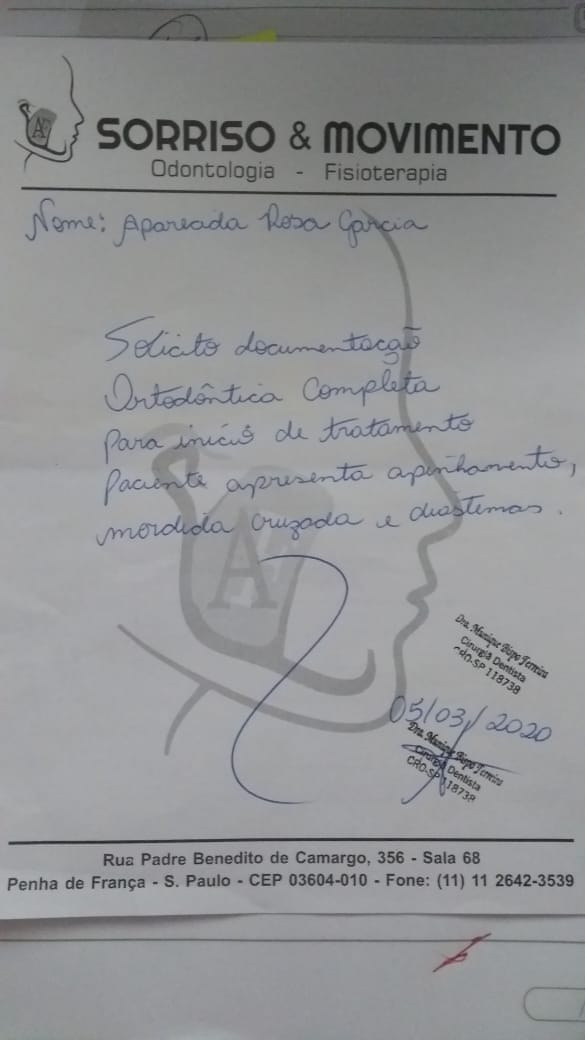 AF
SORRISO & MOVIMENTO
Odontologia - Fisioterapia
Nome: Aparecida Rosa Garcia
Solicito documentação
Ortodôntica Completa
para início de tratamento
paciente apresenta apinhamento,
mordida cruzada e diastemas.
AF
Dra. Munique Bispo Ferreira
Cirurgiã Dentista
CRO-SP 118738
05/03/2020
Dra. Munique Bispo Ferreira
Cirurgiã Dentista
CRO-SP 118738
Rua Padre Benedito de Camargo, 356 - Sala 68
Penha de França - S. Paulo - CEP 03604-010 - Fone: (11) 11 2642-3539